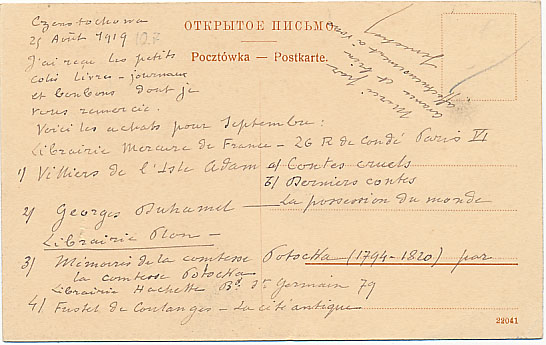 ОТКРЫТОЕ ПИСЬМО
Pocztówka — Postkarte.
Czenstochowa
25 Août 1919
J'ai reçu les petits
colis livres - journaux
et bonbons dont je
vous remercie.
Voici les achats pour Septembre:
Librairie Mercure de France - 26 R de Condé Paris VI
1) Villiers de l'Isle Adam a/ Contes cruels
b/ Derniers contes
2) Georges Duhamel — La possession du monde
Librairie Plon —
3) Mémoires de la comtesse Potocka (1794-1820) par
la comtesse Potocka
Librairie Hachette Bd St Germain 79
4) Fustel de Coulanges - La cité antique
Merci par
avance et bien
affectueusement à vous
22041